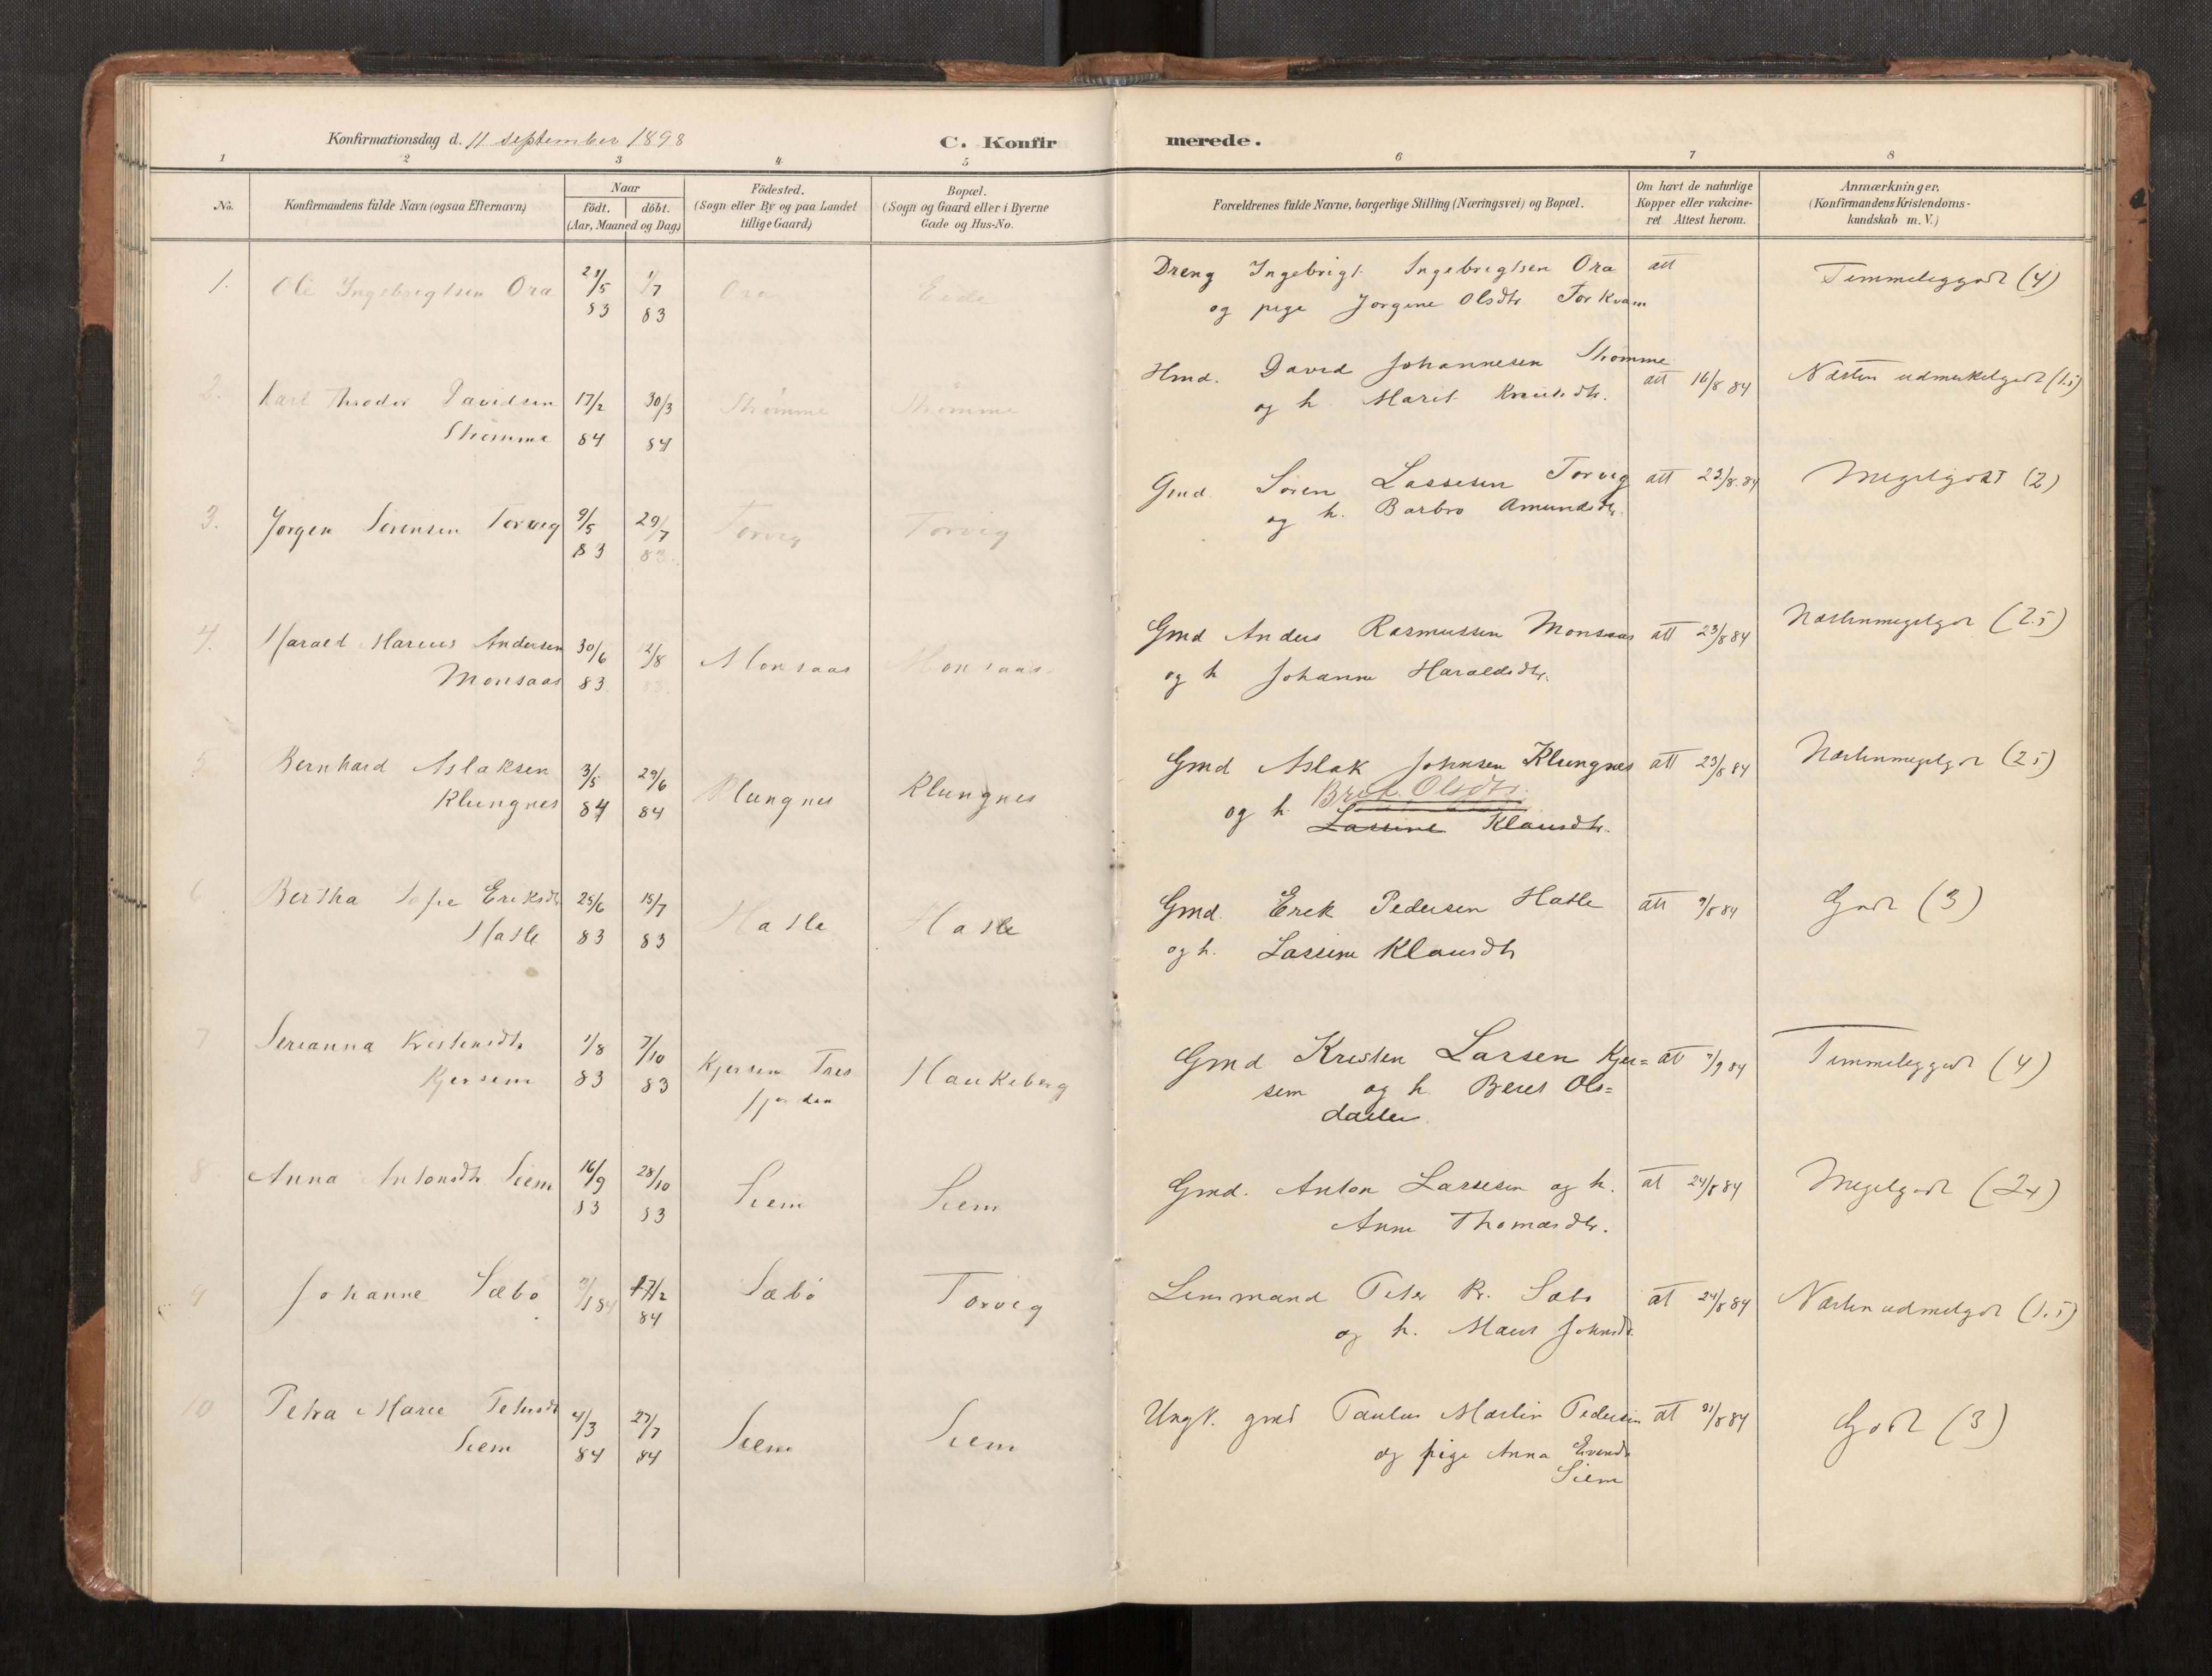 Konfirmationsdag d. 11 september 1898
C. Konfirmerede.
1 2 3 4 5 6 7 8
No.
Konfirmandens fulde Navn (ogsaa Efternavn)
Naar
födt. döbt.
(Aar, Maaned og Dag)
Födested.
(Sogn eller By og paa Landet
tillige Gaard)
Bopæl.
(Sogn og Gaard eller i Byerne
Gade og Hus-No.
Forældrenes fulde Navne, borgerlige Stilling (Næringsvei) og Bopæl.
Om havt de naturlige
Kopper eller vakcine-
ret Attest herom.
Anmærkninger.
(Konfirmandens Kristendoms-
kundskab m. V.)
1. Ole Ingebrigtsen Ora 21/5 83 1/7 83 Ora Eide
Dreng Ingebrigt Ingebrigtsen Ora att Temmeliggodt (4)
og pige Jorgine Olsdtr Torkvam
2. Karl Theodor Davidsen 17/2 30/3 Strømme Strømme
Strømme 84 84
Hmd. David Johannesen Strømme att 16/8 84 Næsten udmerketgodt (1.5)
og h. Marit Knudsdtr.
3. Jørgen Sørensen Torvig 9/5 83 29/7 83. Torvig Torvig
Gmd. Søren Lassesen Torvig att 23/8.84 Megetgodt (2)
og h. Barbro Amundsdtr.
4. Harald Marius Andersen 30/6 12/8 Monsaas Monsaas
Monsaas 83. 83.
Gmd Anders Rasmussen Monsaas att 23/8 84 Næstenmegetgodt (2.5)
og h Johanne Haraldsdtr.
5 Bernhard Aslaksen 3/5 29/6 Klungnes Klungnes
Klungnes 84 84
Gmd Aslak Johnsen Klungnes att 23/8 84 Næstenmegetgodt (2.5)
Brit. Olsdtr.
og h. Lassine Klausdtr.
6 Bertha Sofie Eriksdtr 25/6 15/7 Hasle Hasle
Hasle 83 83
Gmd. Erik Pedersen Hasle att 9/8 84 Godt (3)
og h. Lassine Klausdtr
7 Serianna Kristensdtr 1/8 7/10 Kjersem Tres Haukeberg
Kjersem 83 83 fjorden
Gmd Kristen Larsen Kjer= at 7/9 84 Temmeliggodt (4)
sem og h. Beret Ols=
datter.
8 Anna Antonsdtr Siem 16/9 83 28/10 83 Siem Siem
Gmd. Anton Lassesen og h. at 24/8 84 Megetgodt (2+)
Anne Thomasdtr.
9 Johanne Sæbø 3/1 84 17/2 84 Sæbø Torvig
Lensmand Peter K. Sæbø at 24/8 84 Næsten udmetgodt (1.5)
og h. Marit Johnsdtr.
10 Petra Marie Petersdtr 4/3 27/7 Siem Siem
Siem 84 84
Ungk. gmd Paulus Martin Pedersen at 31/8 84 Godt (3)
og pige Anna Evensdtr
Siem